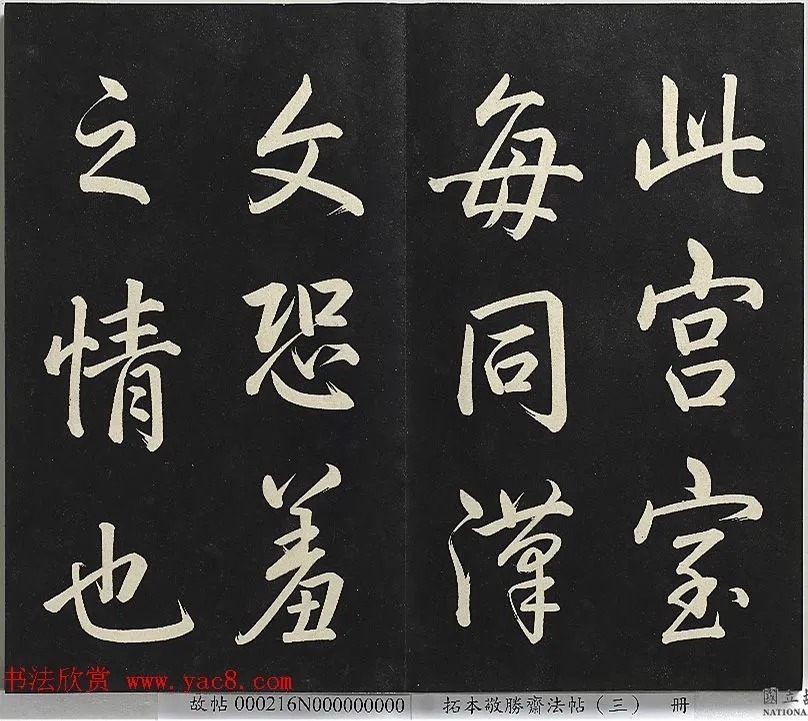 此宫室
每同漢
文恐羞
之情也
书法欣赏 www.yac8.com
故帖 000216N000000000 拓本敬勝齋法帖（三） 册
國立
NATIONA